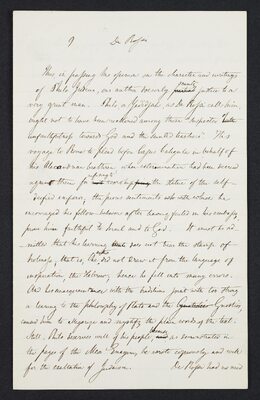 9 De Rossi
This is passing the opinion on the character and writings
of Philo Judeus, our author scarcely does justice to a
very great man. Philo a Jedidjan, as De Rossi calls him,
ought not to have been reckoned among those suspected
unfaithfulness toward God and the Jewish teachers. His
voyage to Rome to plead before Caligula on behalf of
his Alexandrian brethren when extermination had been decreed
against them for not worshiping the statue of the self-
deified emperor, the pious sentiments with which he
encouraged his fellow-believers after having failed in his embassy,
prove him faithful to Israel and to God. It must be ad-
mitted that his learning does not bear the stamp of
holiness, that is, that he did not draw it from the language of
inspiration, the Hebrew; hence he fell into many errors.
And his unacquaintance with the tradition, joined with too strong
a leaning to the philosophy of Plato and the Gnostics,
caused him to allegorize and mystify the plain wording of the text.
Still, Philo deserves well of his people, as demonstrated in
the pages of the Meor Enayim, he wrote copiously and well
for the exaltation of Judaism.
De Rossi had no need